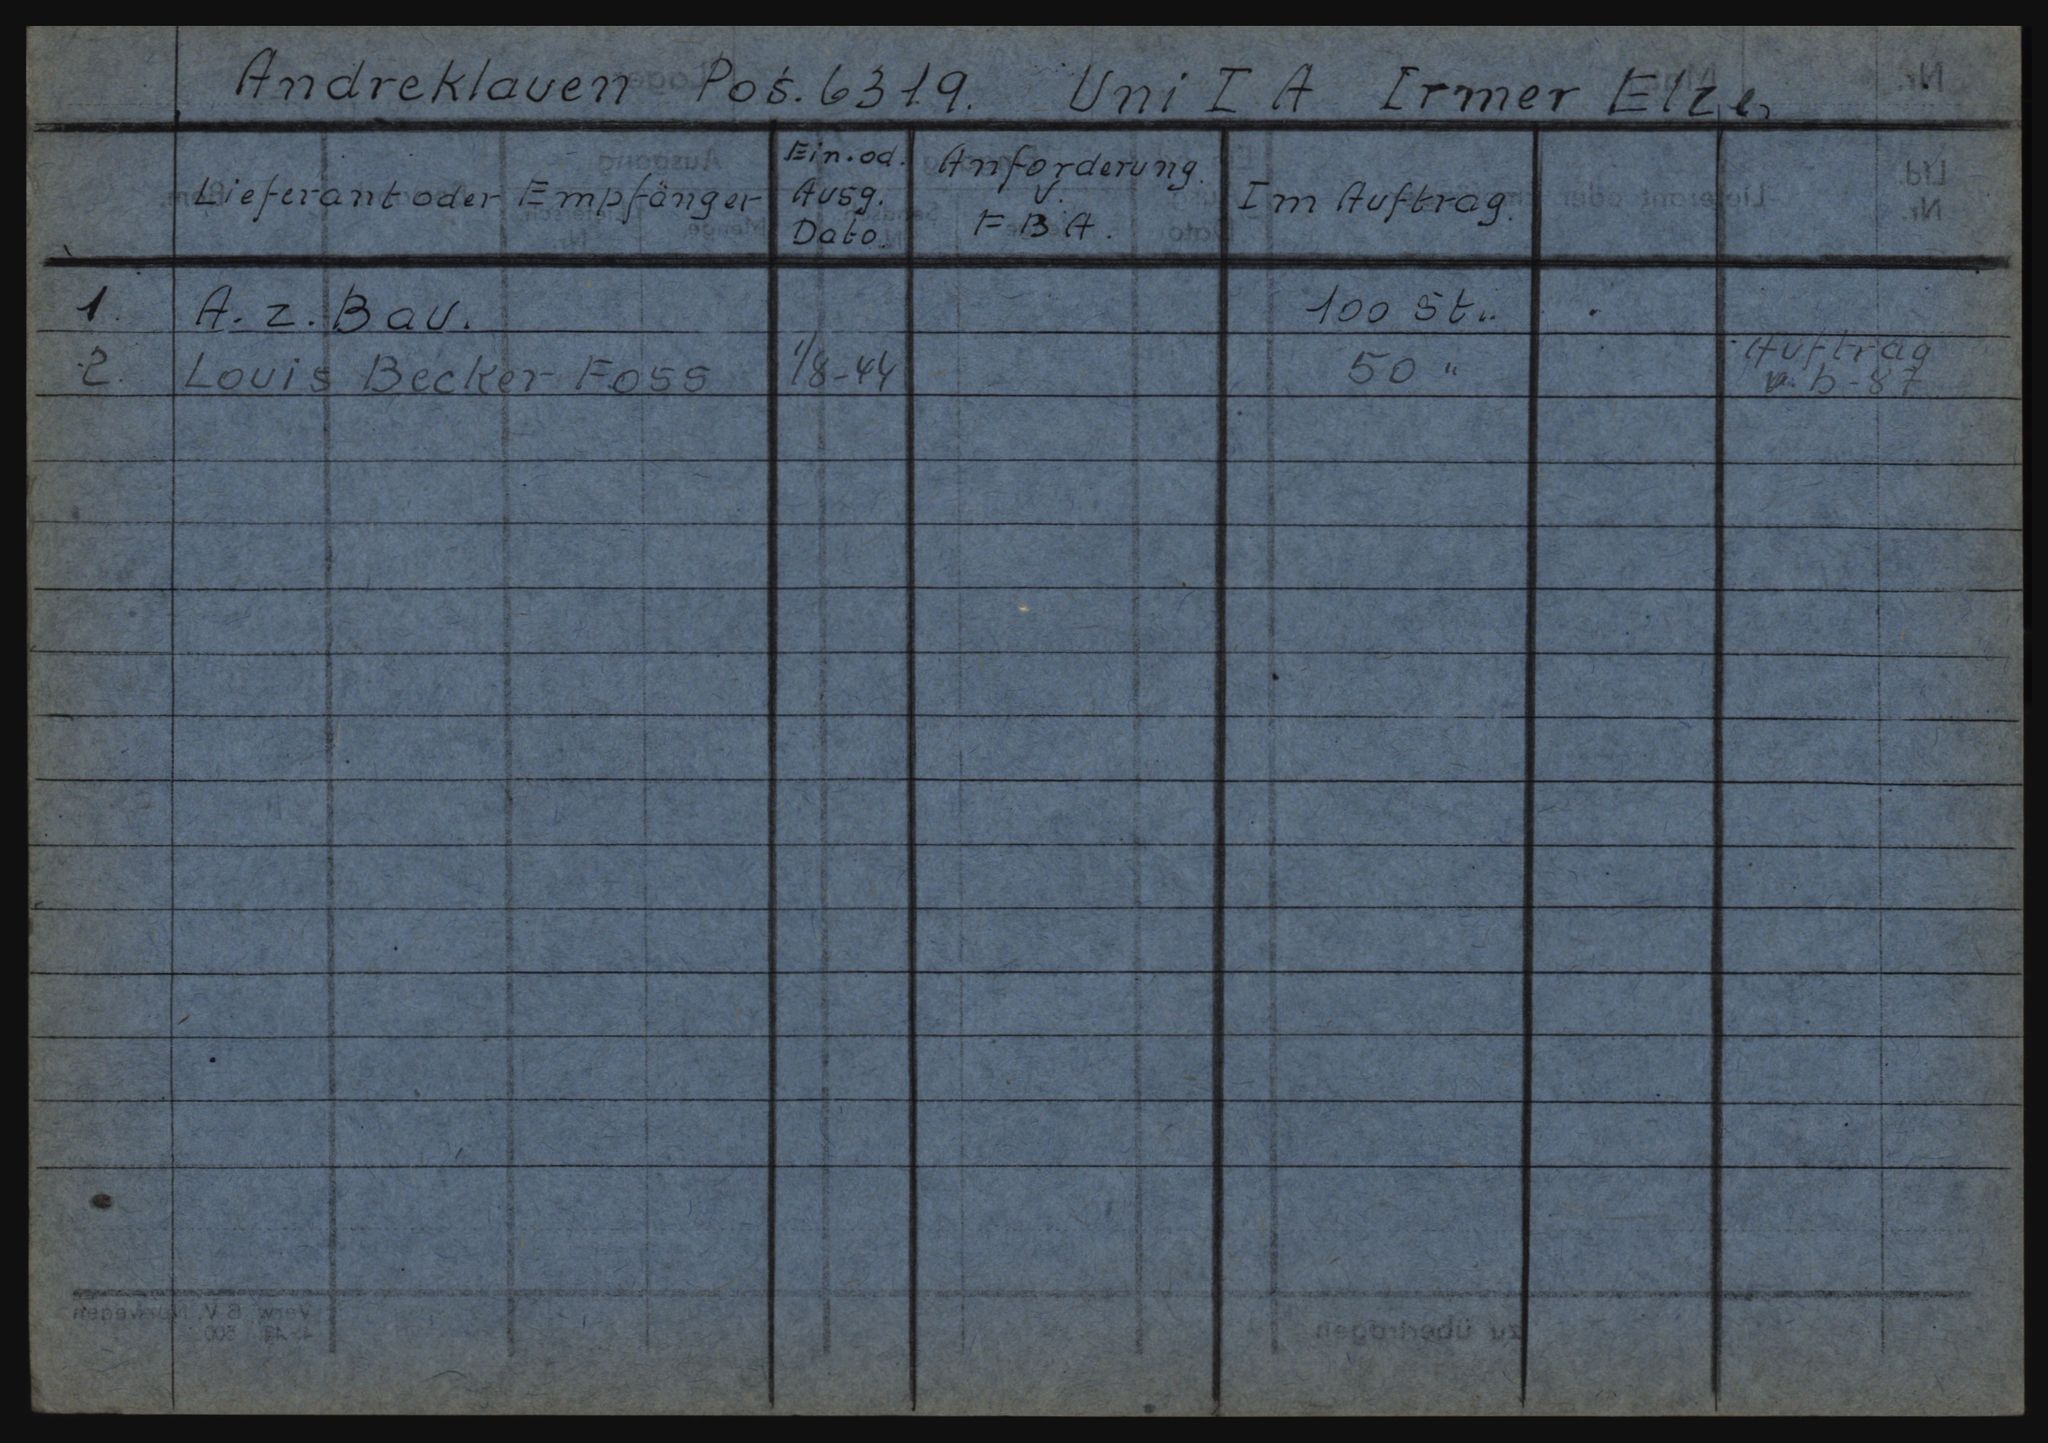 Andreklauen Pos. 6319. Uni I A Irmer Elze
Lieferant oder Empfänger
Ein. od.
Ausg.
Dato.
Anforderung.
v.
F B A.
Im Auftrag.
1. A. z. Bau. 100 St..
2. Louis Becker Foss 1/8-44 50 "
Auftrag
b-87
zu übertragen